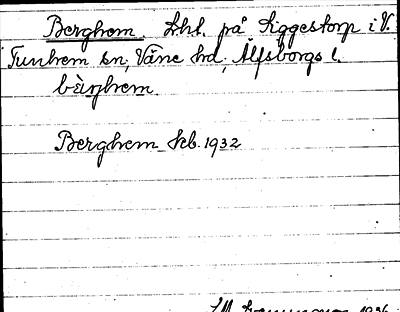 Berghem. Lht. på Siggestorp i V.
Tunhem sn, Väne hd, Älfsborgs l.
bæ̀rjhem.
Berghem Skb. 1932
1936